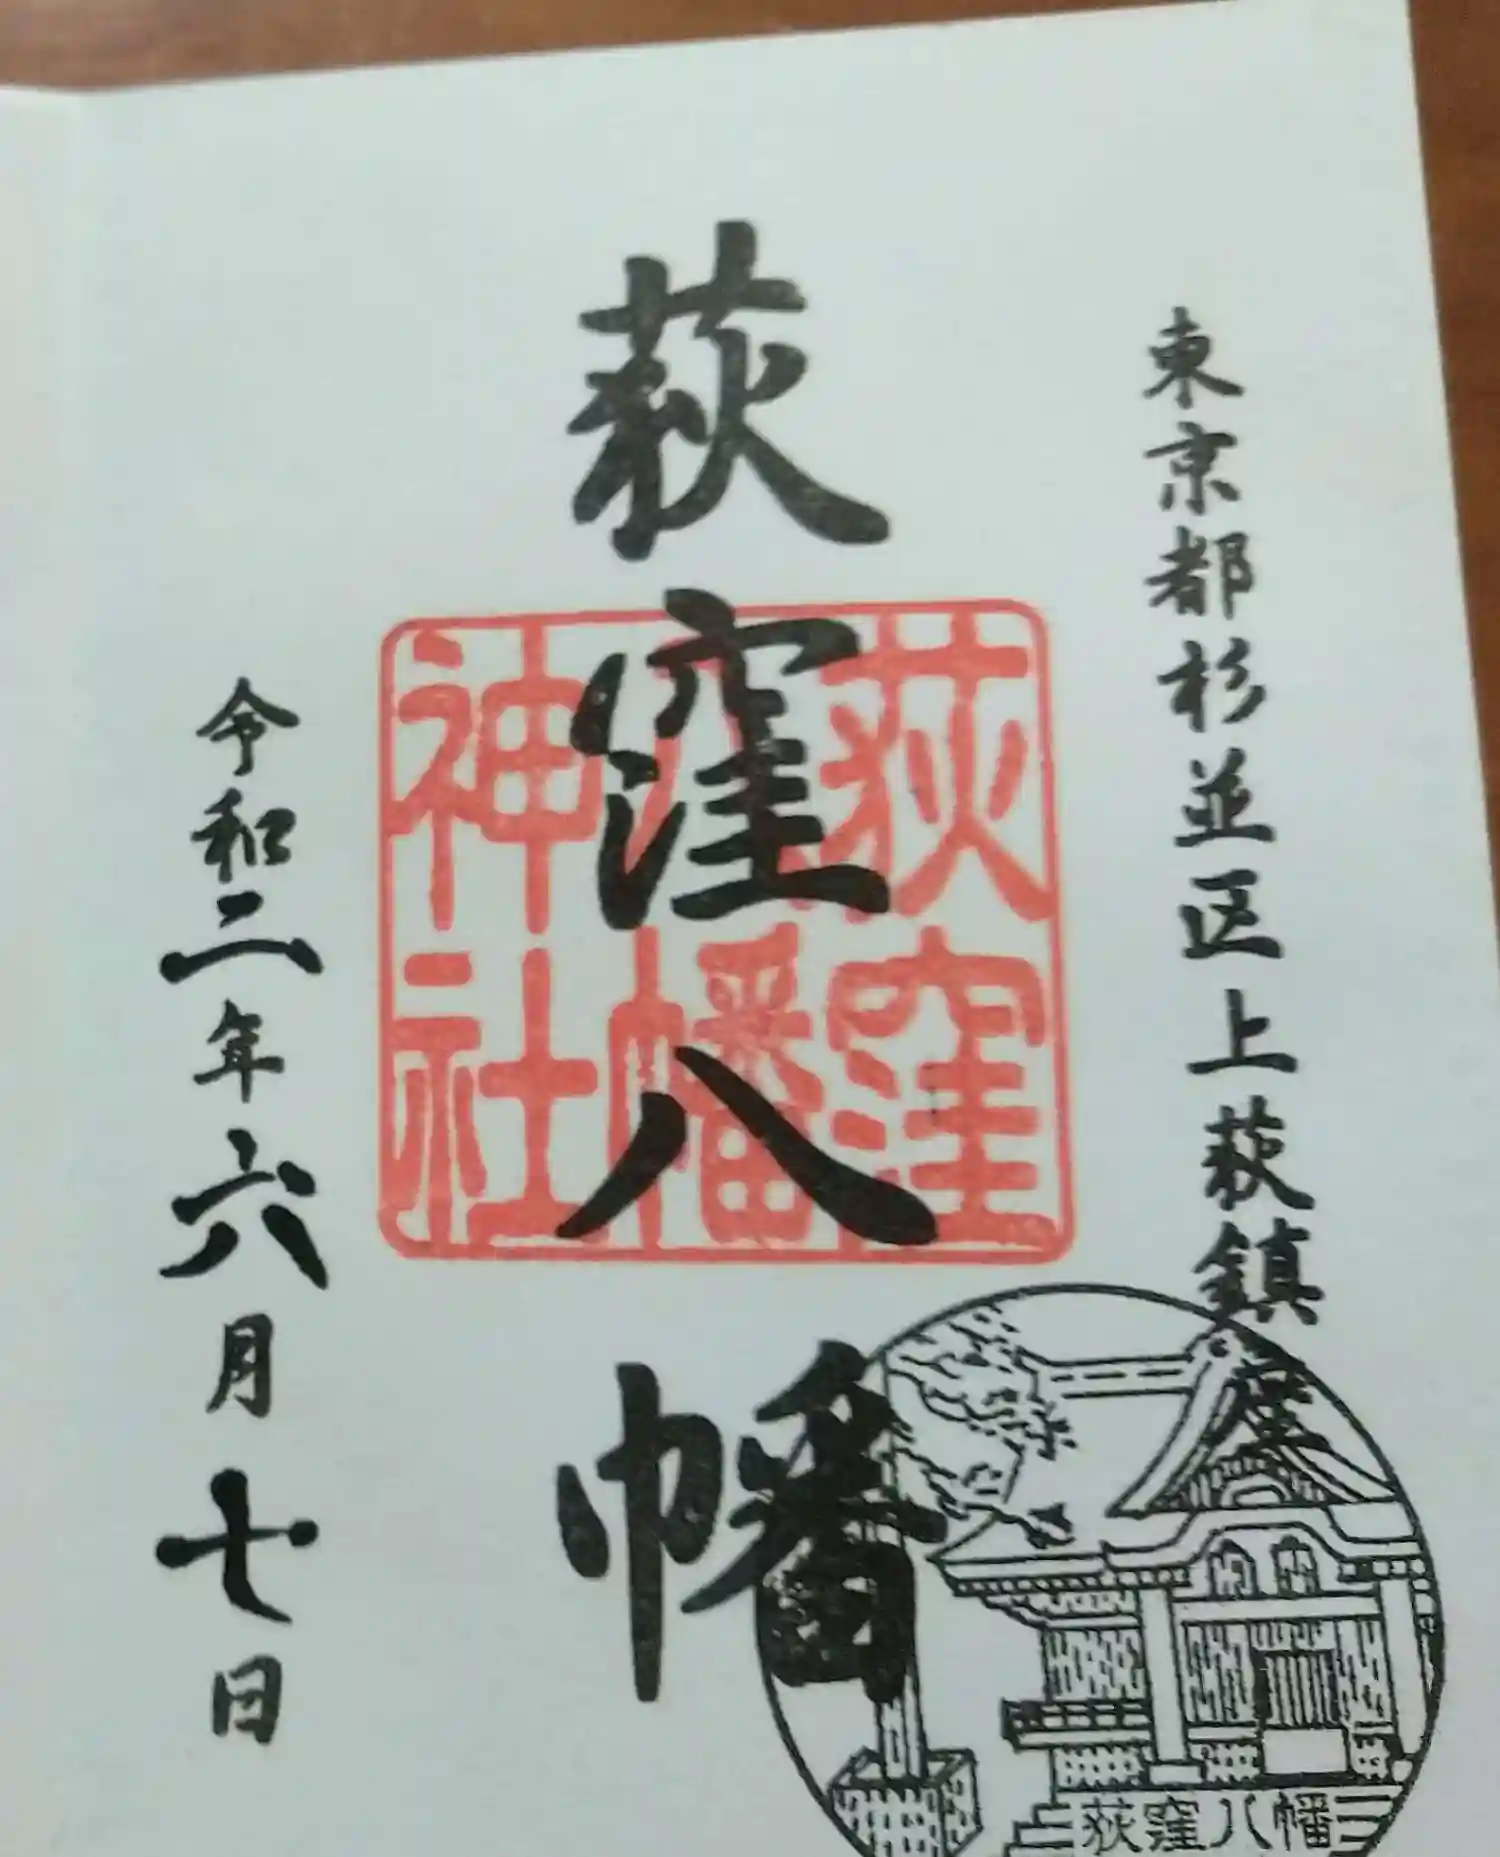 東京都杉並区上荻鎮座
荻窪八幡
荻窪
八幡
神社
令和二年六月七日
荻窪八幡